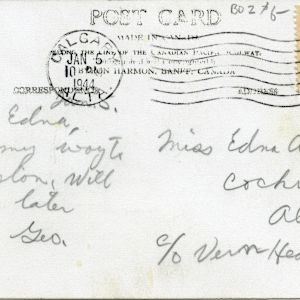 POST CARD
BO 2 75
MADE IN CANADA
ALONG THE LINE OF THE CANADIAN PACIFIC RAILWAY.
BYRON HARMON, BANFF, CANADA
CALGARY
JAN 5
10
1944
ALTA
CORRESPONDENCE
ADDRESS
Edna,
my
will
later
Geo.
Miss Edna A
Coch
Al
c/o Vern Hea